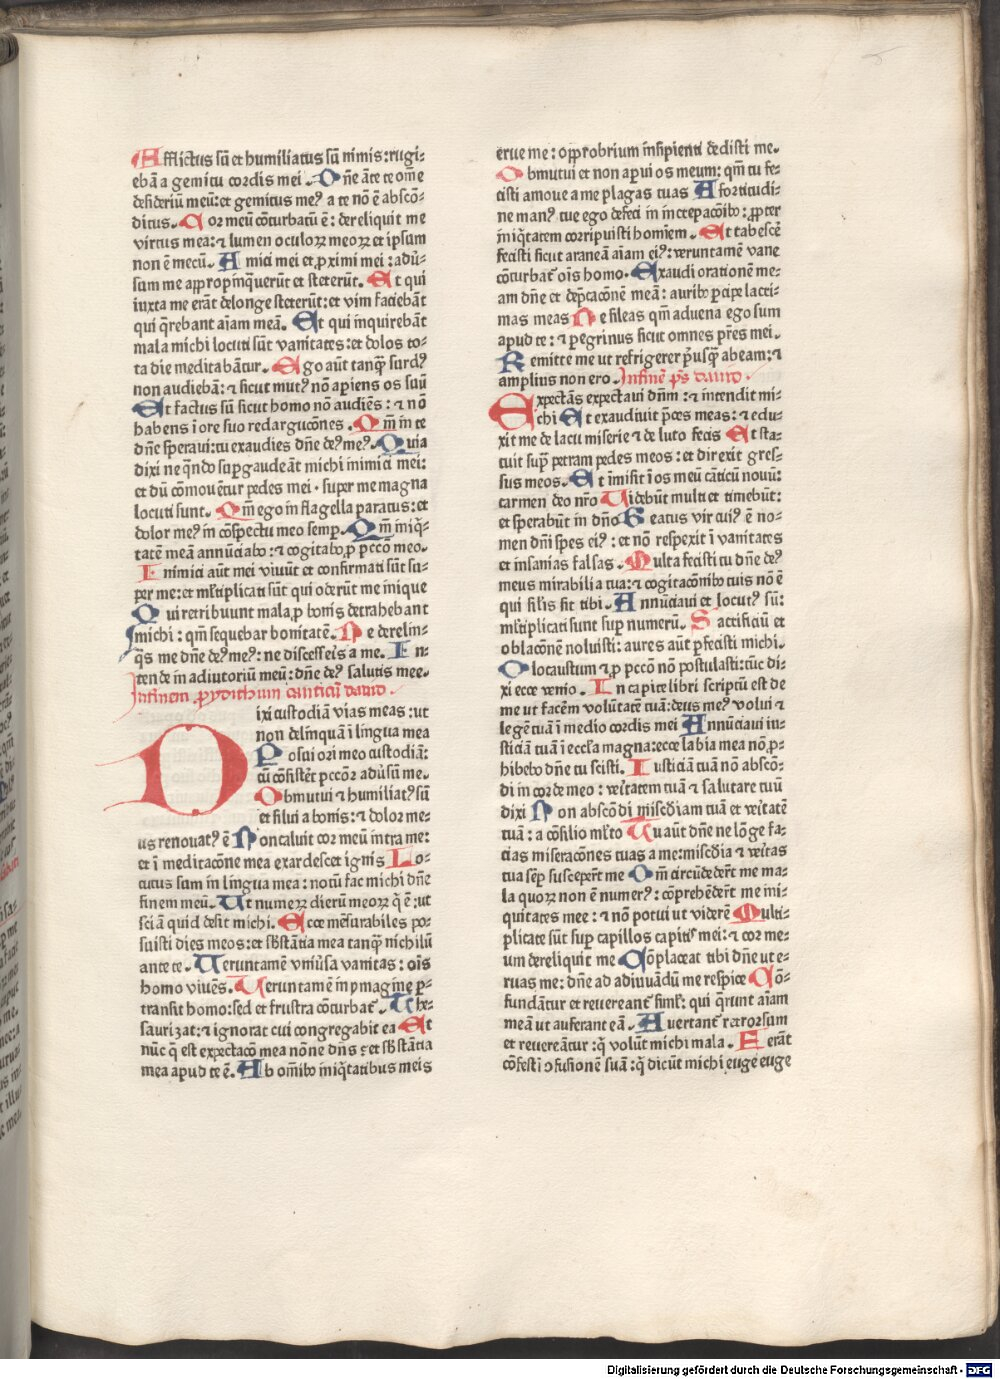 Afflictus sū et humiliatus sū nimis: rugi-
ebā a gemitu cordis mei. Dn̄e āte te om̄e
desideriū meū: et gemitus me⁹ a te nō ē abscō-
ditus. Cor meū cōturbatū ē: dereliquit me
virtus mea: ⁊ lumen oculoꝝ meoꝝ et ipsum
non ē mecū. Amici mei et ꝓximi mei: adū-
sum me appropīnq̄uerūt et steterūt. Et qui
iuxta me erāt de longe steterūt: et vim faciebāt
qui q̄rebant aīam meā. Et qui inquirebāt
mala michi locuti sūt vanitates: et dolos to-
ta die meditabātur. Ego aūt tanqȝ surd⁹
non audiebā: ⁊ sicut mut⁹ nō apiens os suū
Et factus sū sicut homo nō audiēs: ⁊ nō
habens ī ore suo redargucōnes. Qm̄ in te
dn̄e speraui: tu exaudies dn̄e de⁹ me⁹. Quia
dixi ne qn̄do suꝑgaudeāt michi inimici mei:
et dū cōmouētur pedes mei. super me magna
locuti sunt. Qm̄ ego in flagella paratus: et
dolor me⁹ in cōspectu meo semꝑ. Qm̄ iniq̄-
tatē meā annūciabo: ⁊ cogitabo ꝓ pccō meo.
Inimici aūt mei viuūt et confirmati sūt su-
per me: et ml̄tiplicati sūt qui oderūt me inique
Qui retribuunt mala ꝓ bonis detrahebant
michi: qm̄ sequebar bonitatē. Ne derelin-
q̄s me dn̄e de⁹ me⁹: ne discesseis a me. In-
tende in adiutoriū meū: dn̄e de⁹ salutis mee.
Infinem ꝓ ydithun canticū dauid.
Dixi custodiā vias meas: ut
non delinquā ī lingua mea
Posui ori meo custodiā:
cū cōsistēt pccōr adūsū me.
Obmutui ⁊ humiliat⁹ sū
et silui a bonis: ⁊ dolor me-
us renouat⁹ ē Concaluit cor meū intra me:
et ī meditacōne mea exardescet ignis Lo-
cutus sum in lingua mea: notū fac michi dn̄e
finem meū. Ut numeꝝ dierū meoꝝ q̄ ē: ut
sciā quid desit michi. Ecce mēsurabiles po-
suisti dies meos: et sb̄stātia mea tanqȝ nichilū
ante te. Ueruntamē vniūsa vanitas: oīs
homo viuēs. Ueruntamē in ymagine ꝑ-
transit homo: sed et frustra cōturbat̄. The-
saurizat: ⁊ ignorat cui congregabit ea Et
nūc q̄ est expectacō mea nōne dn̄s: et sb̄stātia
mea apud te ē. Ab omībȝ iniq̄tatibus meis
erue me: opprobrium īnsipienti dedisti me.
Obmutui et non aꝑui os meum: qm̄ tu fe-
cisti amoue a me plagas tuas A fortitudi-
ne man⁹ tue ego defeci in increpacōibȝ: ꝓpter
iniq̄tatem corripuisti homīem. Et tabescē
fecisti sicut araneā aīam ei⁹: veruntamē vane
cōturbat̄ oīs homo. Exaudi orationē me-
am dn̄e et dep̄cacōnē meā: auribȝ ꝑcipe lacri-
mas meas Ne sileas qm̄ aduena ego sum
apud te: ⁊ peregrinus sicut omnes pr̄es mei.
Remitte me ut refrigerer p̄usqȝ abeam: ⁊
amplius non ero. Infinē ps̄ dauid.
Expectās expectaui dn̄m: ⁊ intendit mi-
chi Et exaudiuit p̄ces meas: ⁊ edu-
xit me de lacu miserie ⁊ de luto fecis Et sta-
tuit sup̄ petram pedes meos: et direxit gres-
sus meos. Et īmisit ī os meū cāticū nouū:
carmen deo nr̄o Uidebūt multi et timebūt:
et sperabūt in dn̄o Beatus vir cui⁹ ē no-
men dn̄i spes ei⁹: et nō respexit ī vanitates
et insanias falsas. Multa fecisti tu dn̄e de⁹
meus mirabilia tua: ⁊ cogitacōnibȝ tuis nō ē
qui sil̄is sit tibi. Annūciaui et locut⁹ sū:
ml̄tiplicati sunt sup numerū. Sacrificiū et
oblacōnē noluisti: aures aūt ꝑfecisti michi.
Olocaustum ⁊ ꝓ pccō nō postulasti: tūc di-
xi ecce venio. In capite libri scriptū est de
me ut facēm volūtatē tuā: deus me⁹ volui ⁊
legē tuā ī medio cordis mei Annūciaui iu-
sticiā tuā ī eccl̄sa magna: ecce labia mea nō ꝓ-
hibebo dn̄e tu scisti. Iusticiā tuā nō abscō-
di in corde meo: vēitatem tuā ⁊ salutare tuū
dixi Non abscōdi miscd̄iam tuā et vēitatē
tuā: a cōsilio ml̄to Tu aūt dn̄e ne lōge fa-
cias miseracōnes tuas a me: miscd̄ia ⁊ vēitas
tua seꝑ susceperūt me Qm̄ circūdedert̄ me ma-
la quoꝝ non ē numer⁹: cōprehēdert̄ me ini-
quitates mee: ⁊ nō potui ut viderē Multi-
plicate sūt suꝑ capillos capitis mei: ⁊ cor me-
um dereliquit me Cōplaceat tibi dn̄e ut e-
ruas me: dn̄e ad adiuuādū me respice Cō-
fundātur et reuereant̄ siml̄: qui q̄runt aīam
meā ut auferant eā. Auertant̄ retrorsum
et reuereātur: q̄ volūt michi mala. Ferāt
cōfestī ꝯfusionē suā: q̄ dicūt michi euge euge
Digitalisierung gefördert durch die Deutsche Forschungsgemeinschaft - DFG